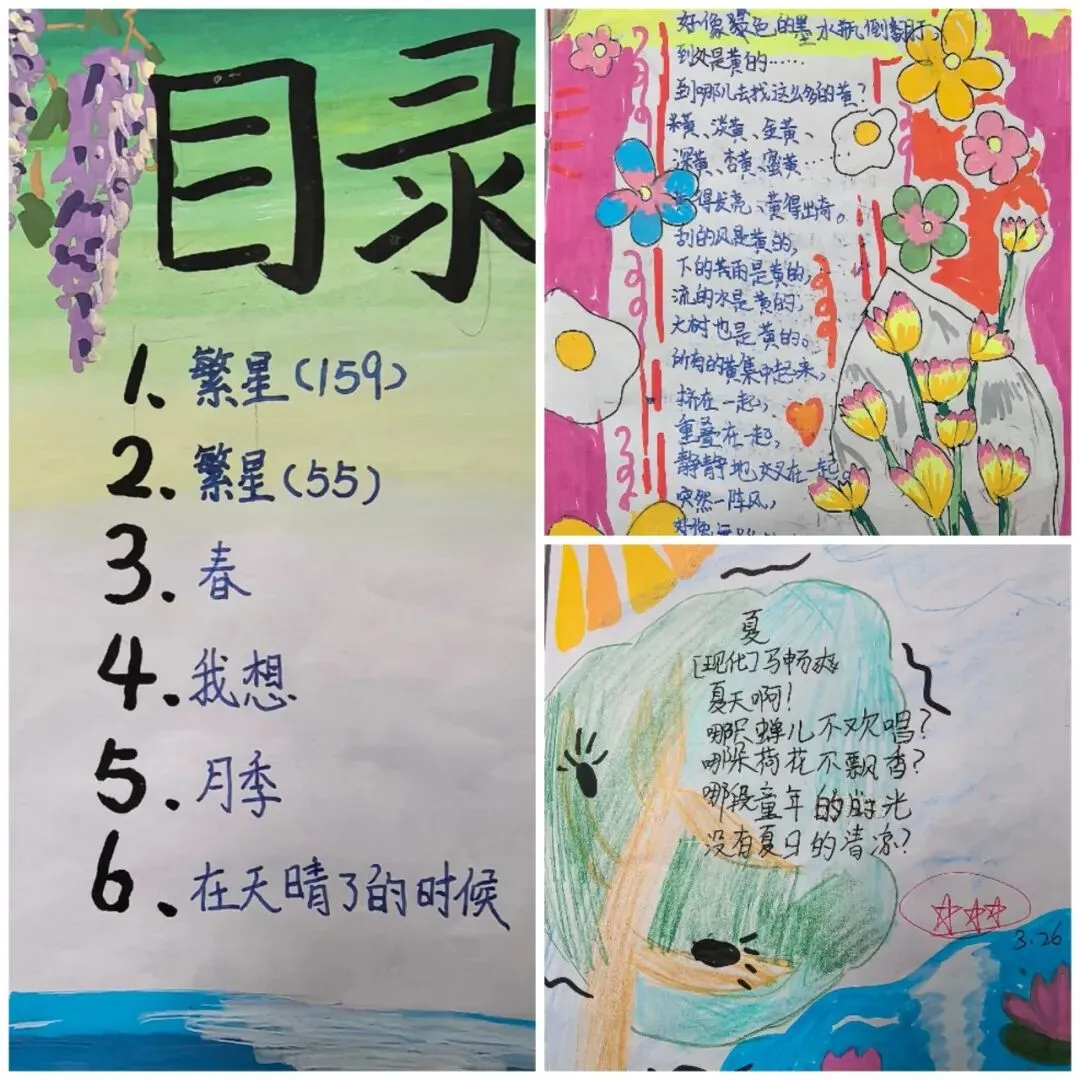 目录
1. 繁星(159)
2. 繁星(55)
3. 春
4. 我想
5. 月季
6. 在天晴了的时候
好像绿色的墨水瓶倒翻了,
到处是黄的……
到哪儿去找这么多的黄?
米黄、淡黄、金黄、
深黄、杏黄、蜜黄……
得发亮、黄得出奇。
刮的风是黄的,
下的雨是黄的,
流的水是黄的,
大树也是黄的。
所有的黄集中起来,
挤在一起,
重叠在一起,
静静地交叉在一起。
突然一阵风,
好像
夏
[现代]马畅爽
夏天啊!
哪只蝉儿不欢唱?
哪朵荷花不飘香?
哪段童年的时光
没有夏日的清凉?
3.26